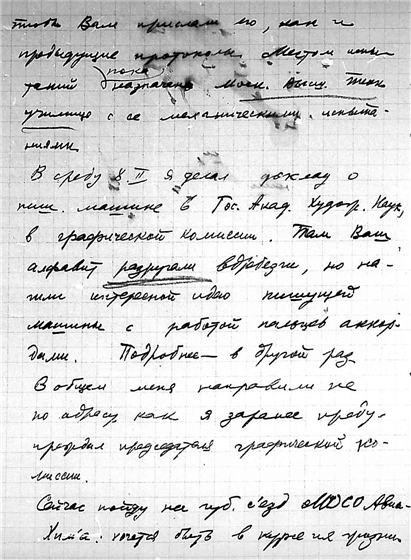 чтобы Вам прислали его, как и
предыдущие протоколы. Местом испы-
таний пока назначено Моск. Высш. Техн.
училище с ее механическими испыта-
ниями.
В среду 8.II я делал доклад о
пиш. машине в Гос. Акад. Худож. Наук,
в графической комиссии. Там Ваш
алфавит разругали вдребезги, но на-
шли интересной идею пишущей
машины с работой пальцев аккор-
дами. Подробнее — в другой раз
В общем меня направили не
по адресу, как я заранее преду-
преждал председателя графической ко-
миссии.
Сейчас пойду на губ. съезд ОСО Авиа-
Хим'а: хочется быть в курсе их